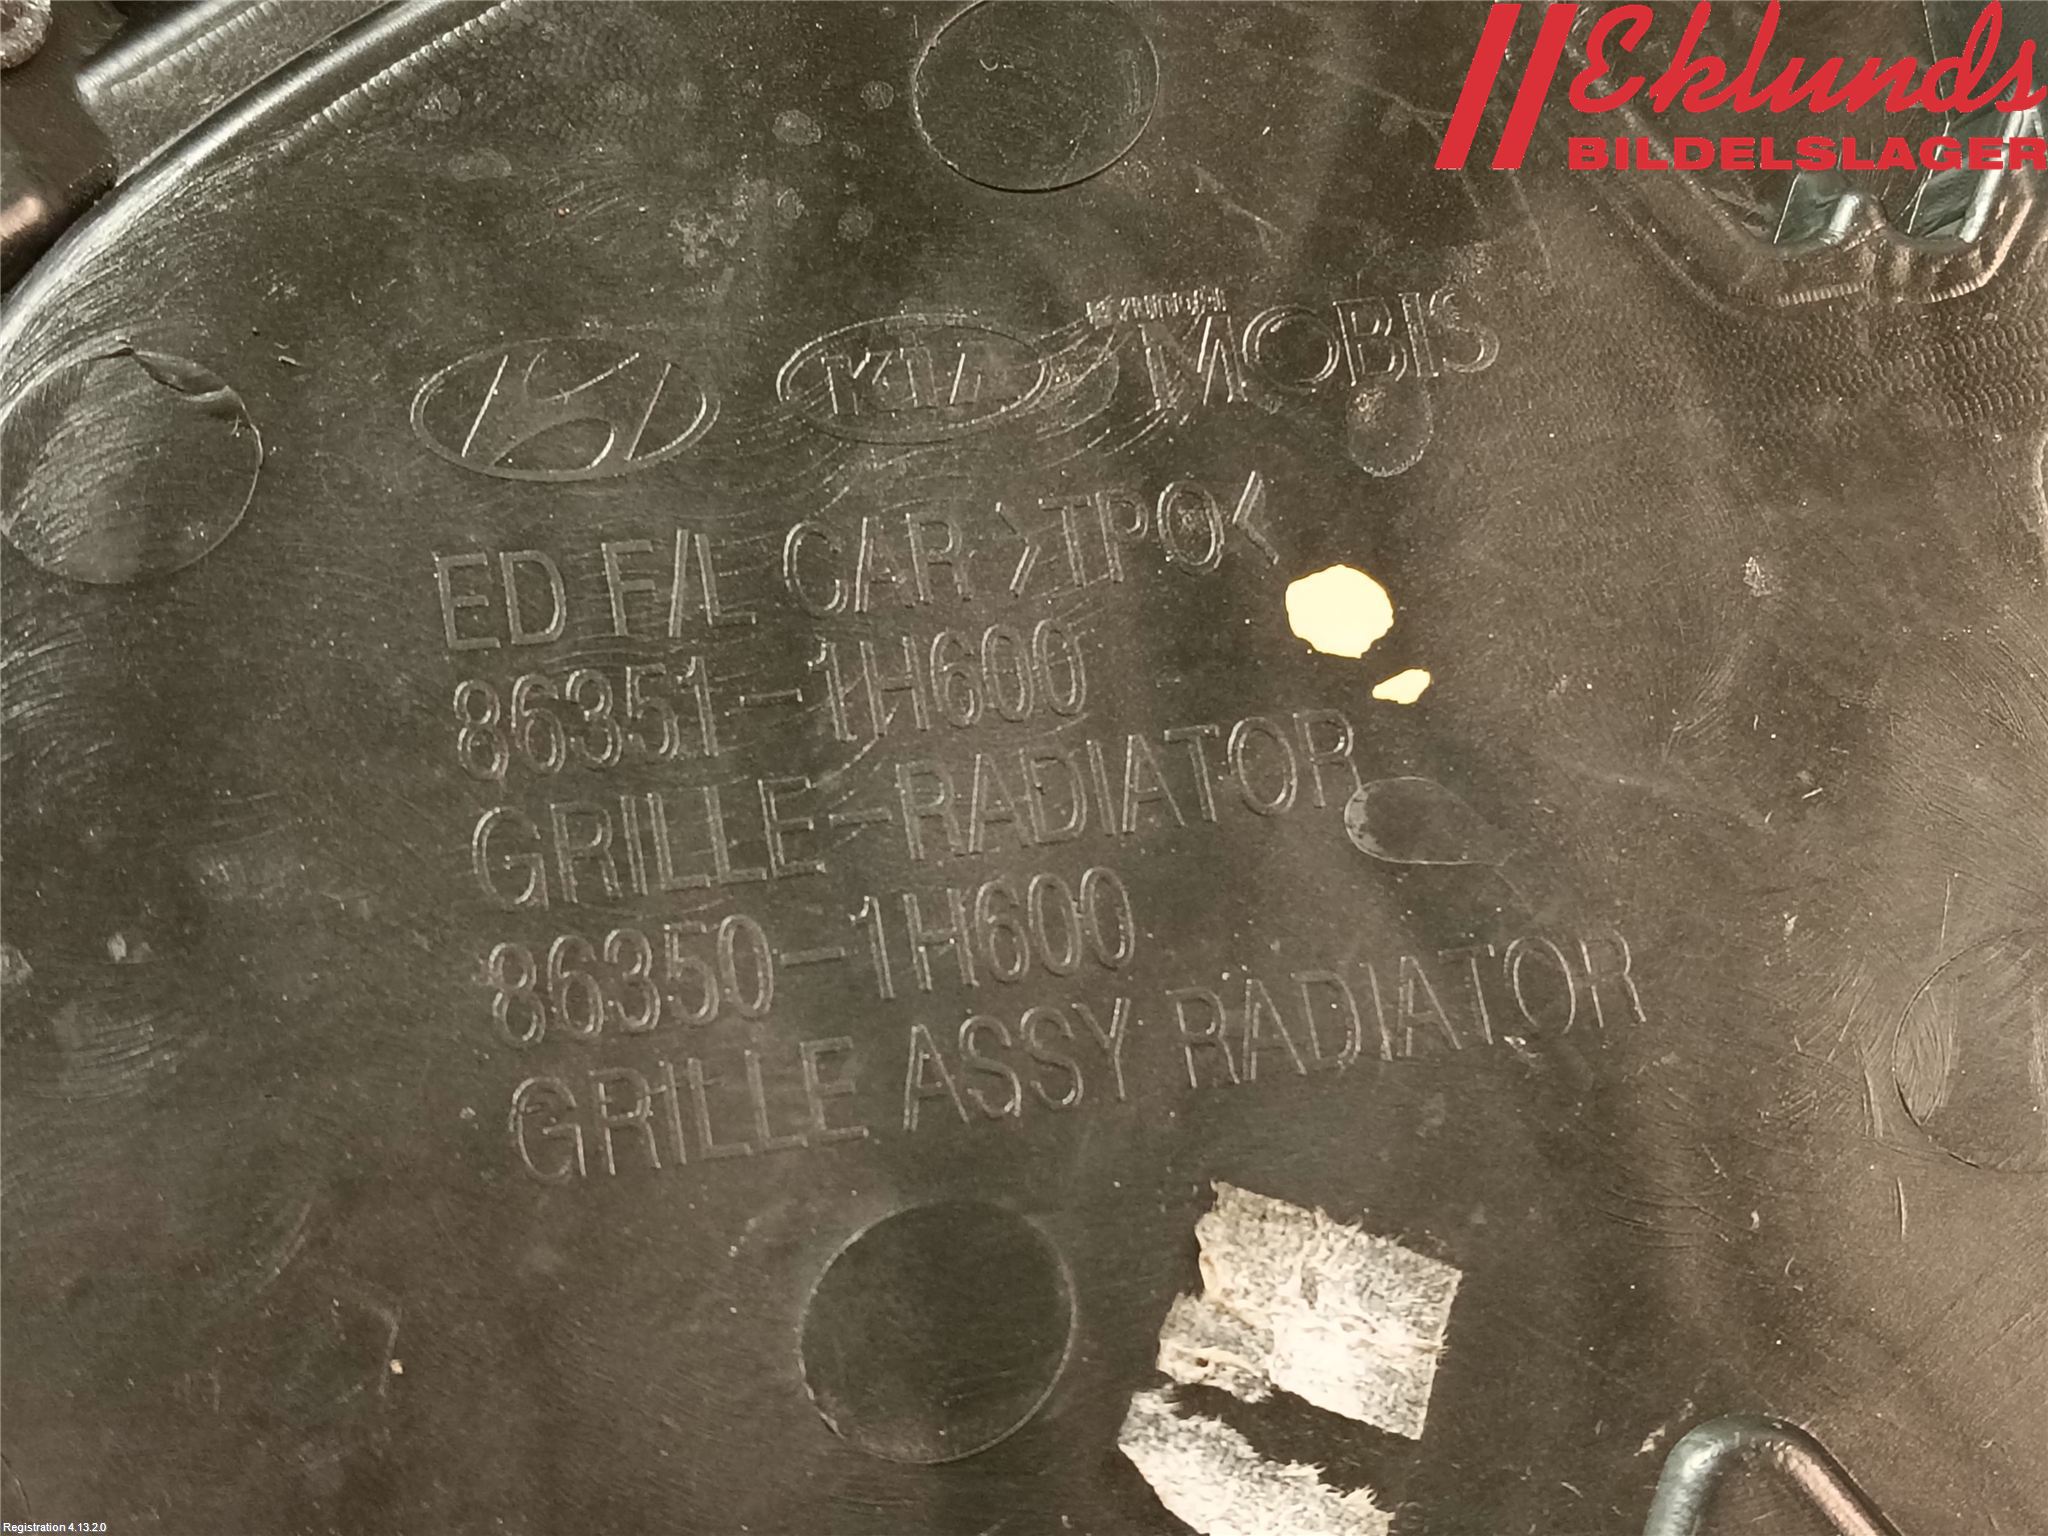 Eklunds
BILDELSLAGER
KIA HYUNDAI MOBIS
ED F/L CAR >TPO<
86351-1H600
GRILLE-RADIATOR
86350-1H600
GRILLE ASSY RADIATOR
Registration 4.13.2.0